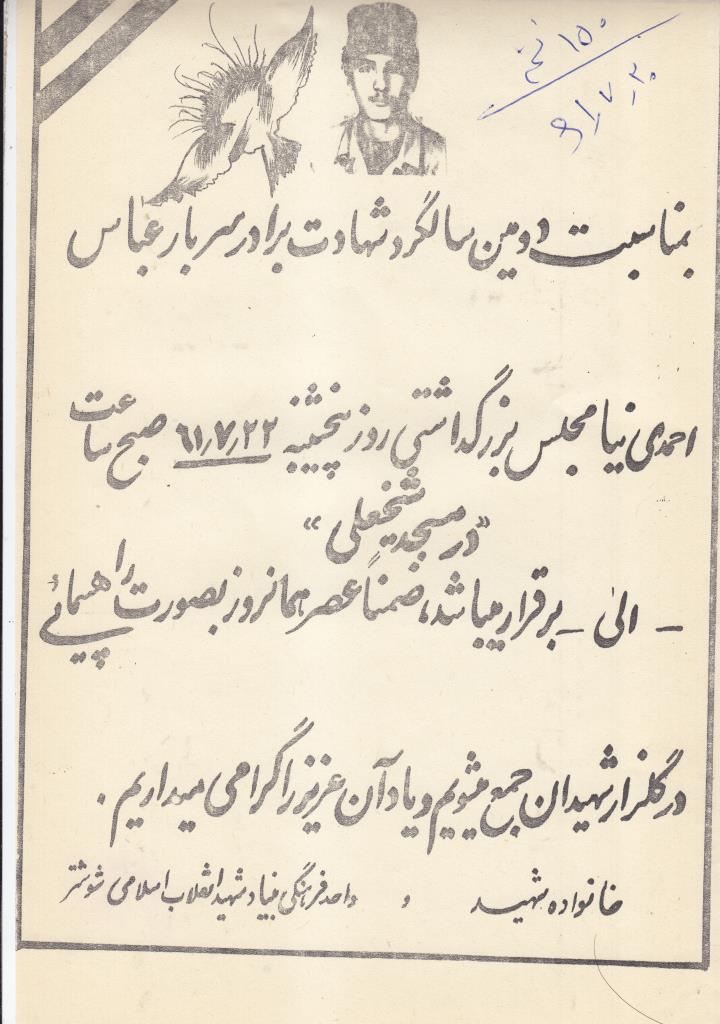 ۱۵۰ نسخ
۶۱٫۷٫۲۰
بمناسبت دومین سالگرد شهادت برادر سرباز عباس
احمدی نیا مجلس بزرگداشتی روز پنجشنبه ۶۱٫۷٫۲۲ صبح ساعت
«در مسجد شیخعلی»
- الی - برقرار میباشد، ضمناً عصر همانروز بصورت راهپیمائی
در گلزار شهیدان جمع میشویم و یاد آن عزیز را گرامی میداریم .
خانواده شهید و واحد فرهنگی بنیاد شهید انقلاب اسلامی شوشتر